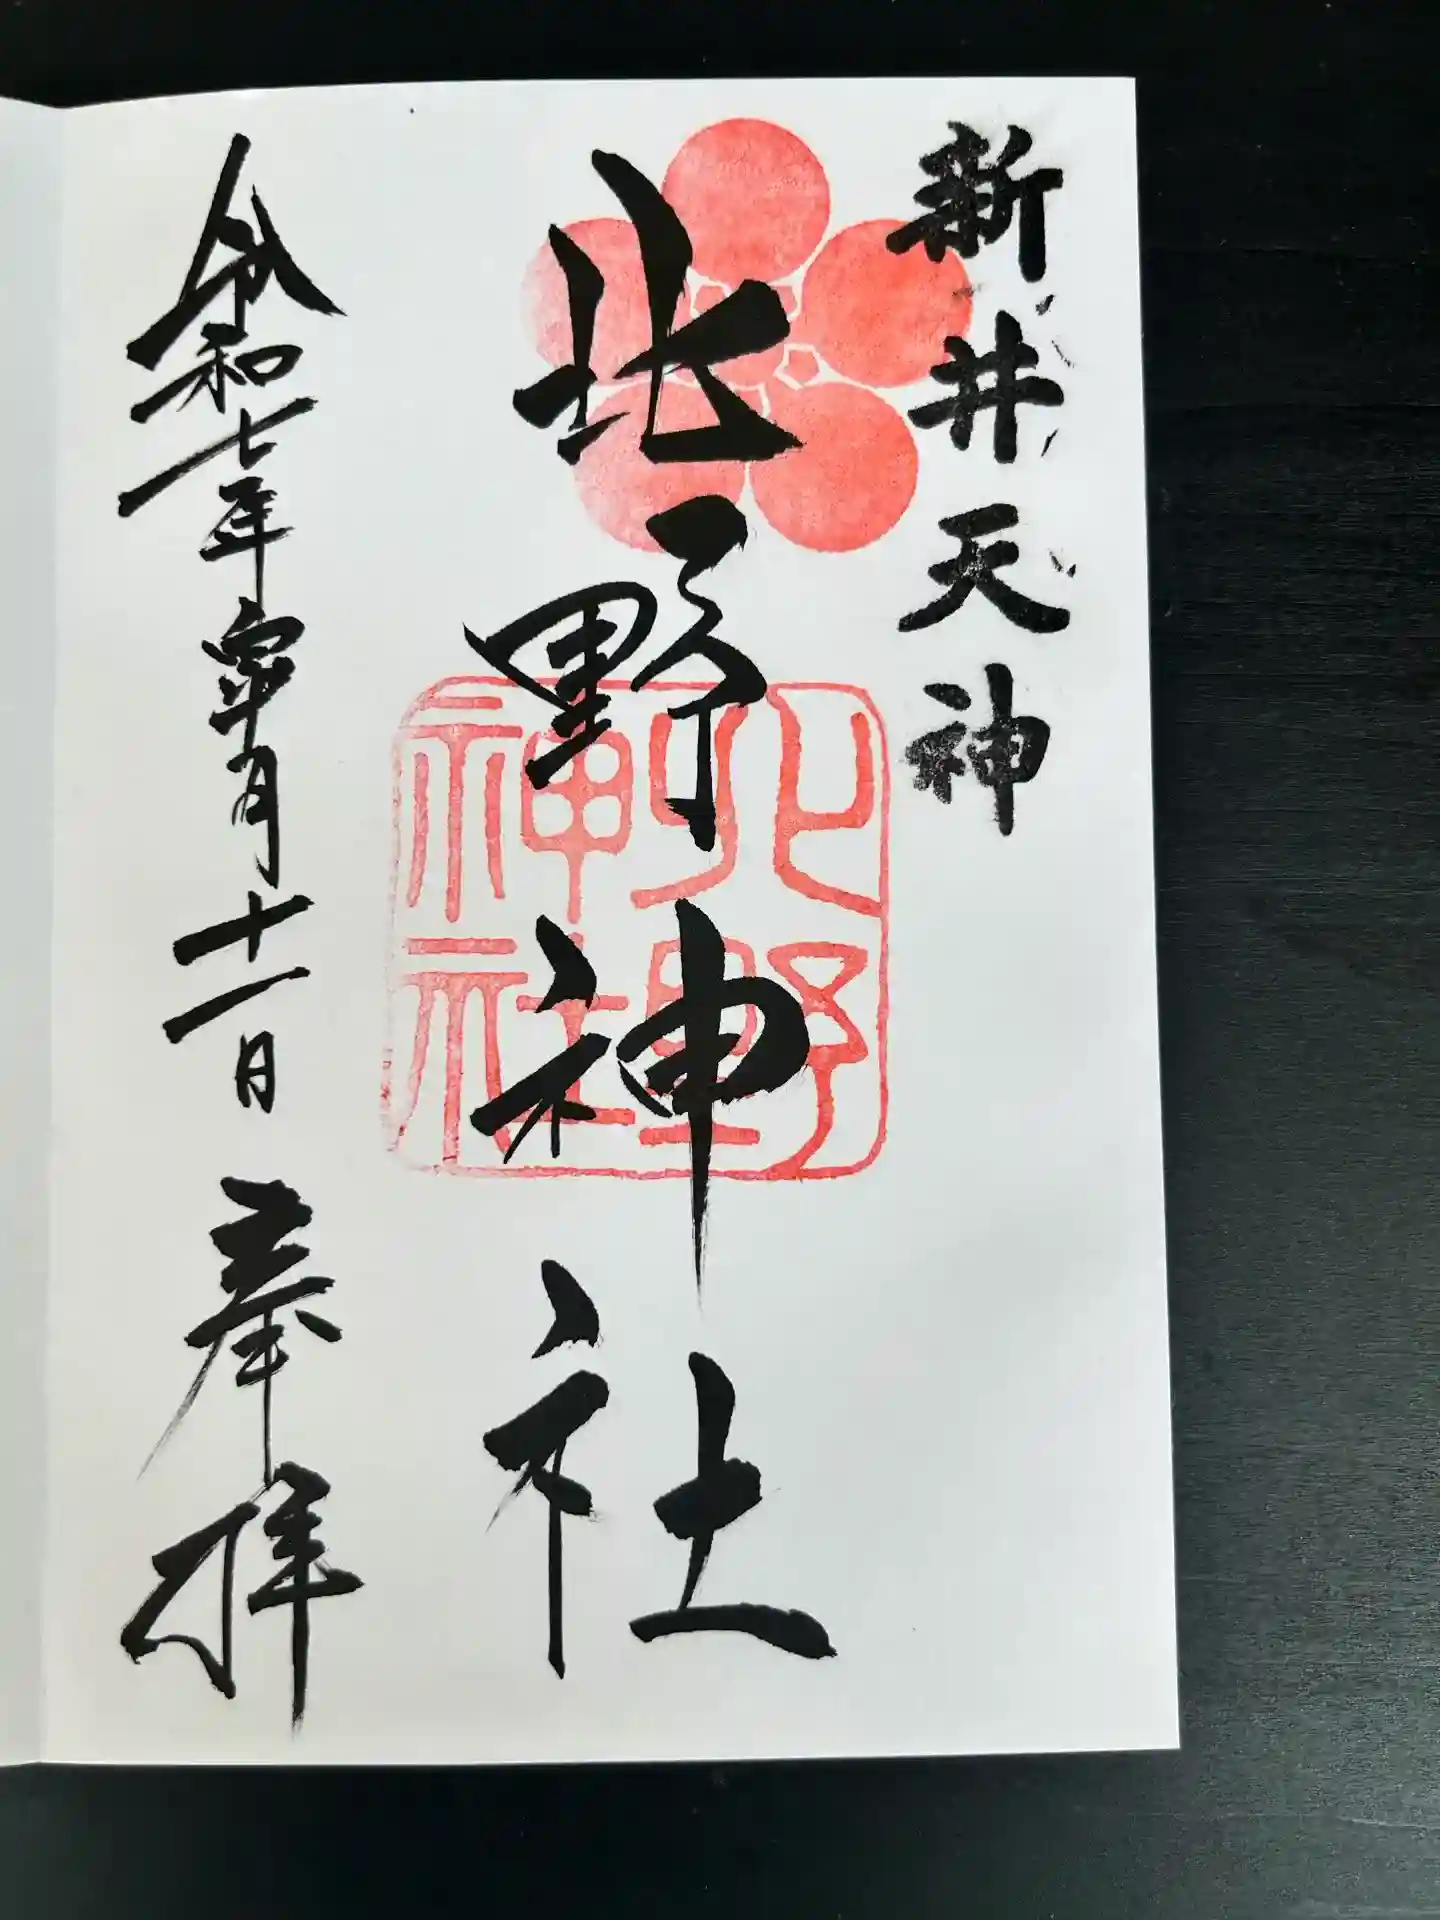 新井天神
北野神社
令和七年皐月十一日 奉拝
北野
神社